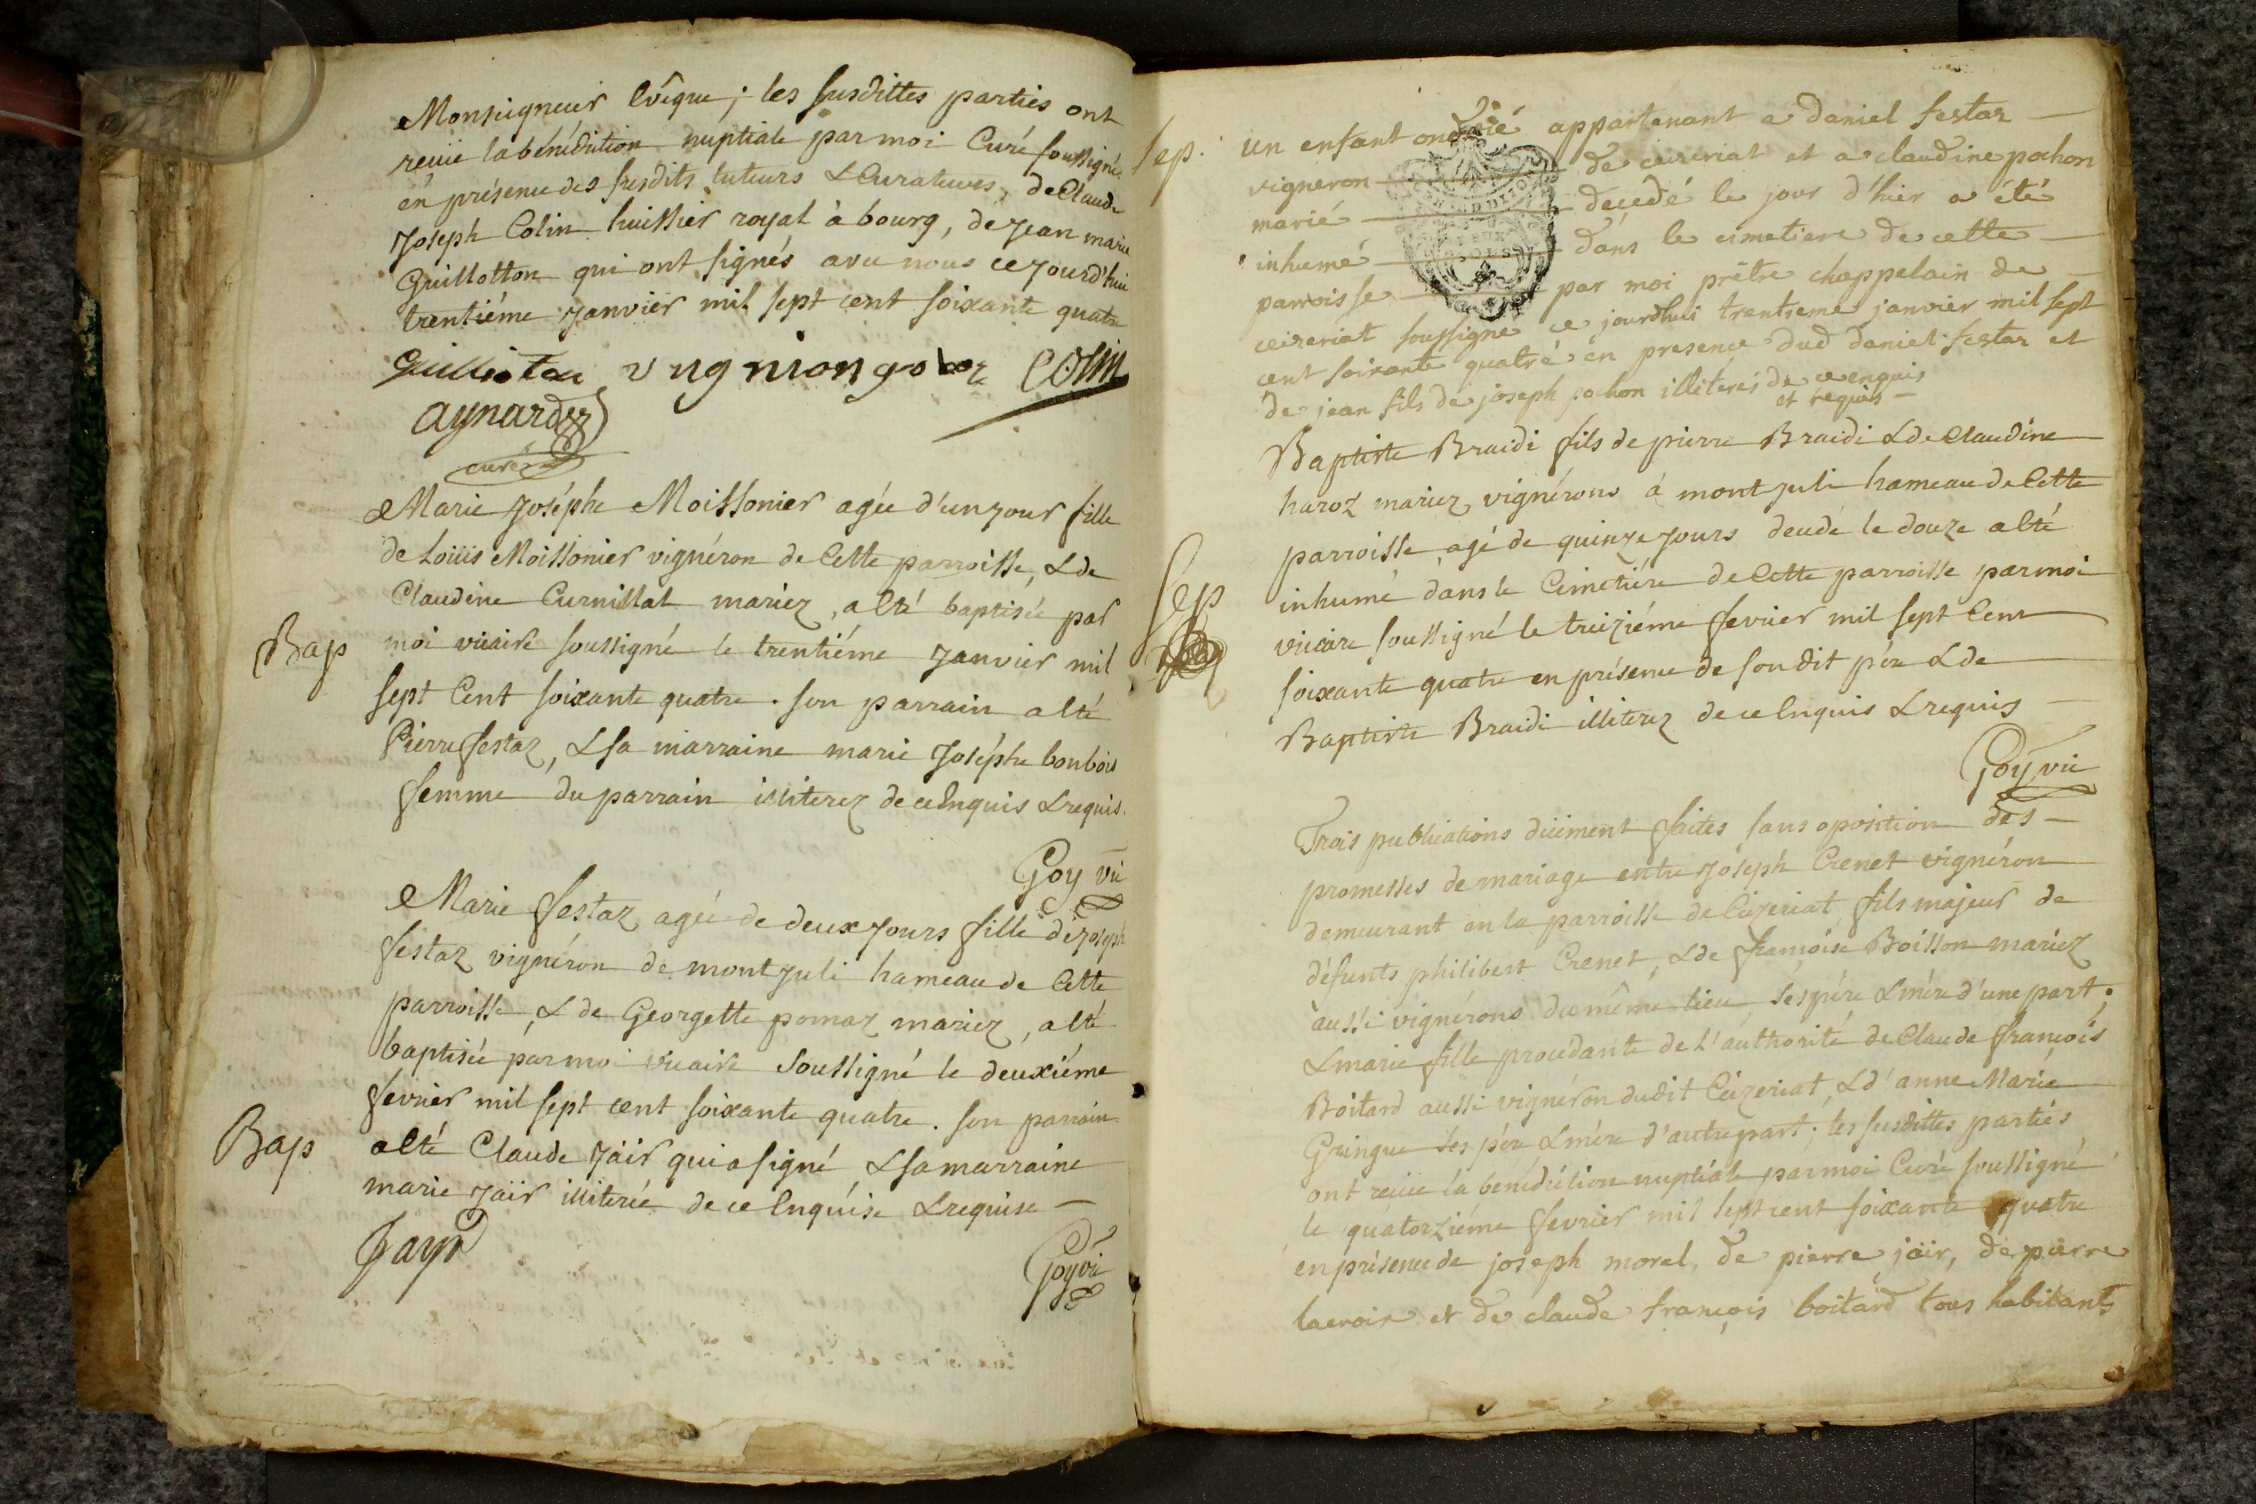 Monseigneur Evêque ; les susdittes parties ont
reçüe la bénédiction nuptiale par moi Curé soussigné
en présence des susdits tuteurs & Curateurs, de Claude
Joseph Colin huissier royal à bourg, de Jean marie
Guillotton qui ont signés avec nous ce jourd'hui
trentiéme janvier mil sept cent soixante quatre
COlin
aynardez
curé
Marie Joséphe Moissonier agée d'un jour fille
de Loüis Moissonier vignéron de Cette parroisse, & de
Claudine Curnillat mariez, a été baptisée par
Bap moi vicaire soussigné le trentiéme janvier mil
sept Cent soixante quatre. son parrain a été
Pierre festaz, & sa marraine marie Joséphe bonbois
femme du parrain illiterez de ce Enquis & requis.
Goy vic
Marie festaz agée de deux jours fille de joseph
festaz vignéron de montjuli hameau de Cette
parroisse, & de Georgette pomaz mariez, a été
baptisée par moi vicaire soussigné le deuxiéme
fevrier mil sept cent soixante quatre. son parrain
Bap a été Claude jäir qui a signé, & sa marraine
marie jäir illiterée de ce Enquise & requise
Jayr
Goy vic
Sep. un enfant ondoié appartenant a daniel festaz
vigneron de ceizeriat et a claudine pochon
marié decedé le jour d'hier a été
inhumé dans le cimetiere de cette
parroisse par moi prêtre chappelain de
ceizeriat soussigné ce jourdhui trentieme janvier mil sept
cent soixante quatre en presence dud daniel festaz et
de jean fils de joseph pochon illiterés de ce enquis
et requis
Baptiste Braidi fils de pierre Braidi & de Claudine
haroz mariez, vignérons à montjuli hameau de Cette
parroisse agé de quinze jours decedé le douze a été
Sep inhumé dans le Cimetiére de Cette parroisse par moi
vicaire soussigné le treiziéme fevrier mil sept Cent
soixante quatre en présence de son dit pére & de
Baptiste Braidi illiterez de ce Enquis & requis
Goy vic
Trois publications düement faites sans oposition des
promesses de mariage entre Joseph Crenet vignéron
demeurant en la parroisse de Ceizeriat, fils majeur de
défunts philibert Crenet, & de françoise Boisson mariez
aussi vignérons du même lieu, ses pére & mére d'une part ;
& marie fille procedante de l'authorité de Claude françois
Boitard aussi vignéron dudit Ceizeriat, & d'anne Marie
Gringue ses pére & mére d'autre part ; les susdittes parties
ont reçüe la bénédiction nuptiale par moi Curé soussigné
le quatorziéme fevrier mil sept cent soixante quatre
en présence de joseph morel, de pierre jäir, de pierre
lacroix et de claude françois boitard tous habitants